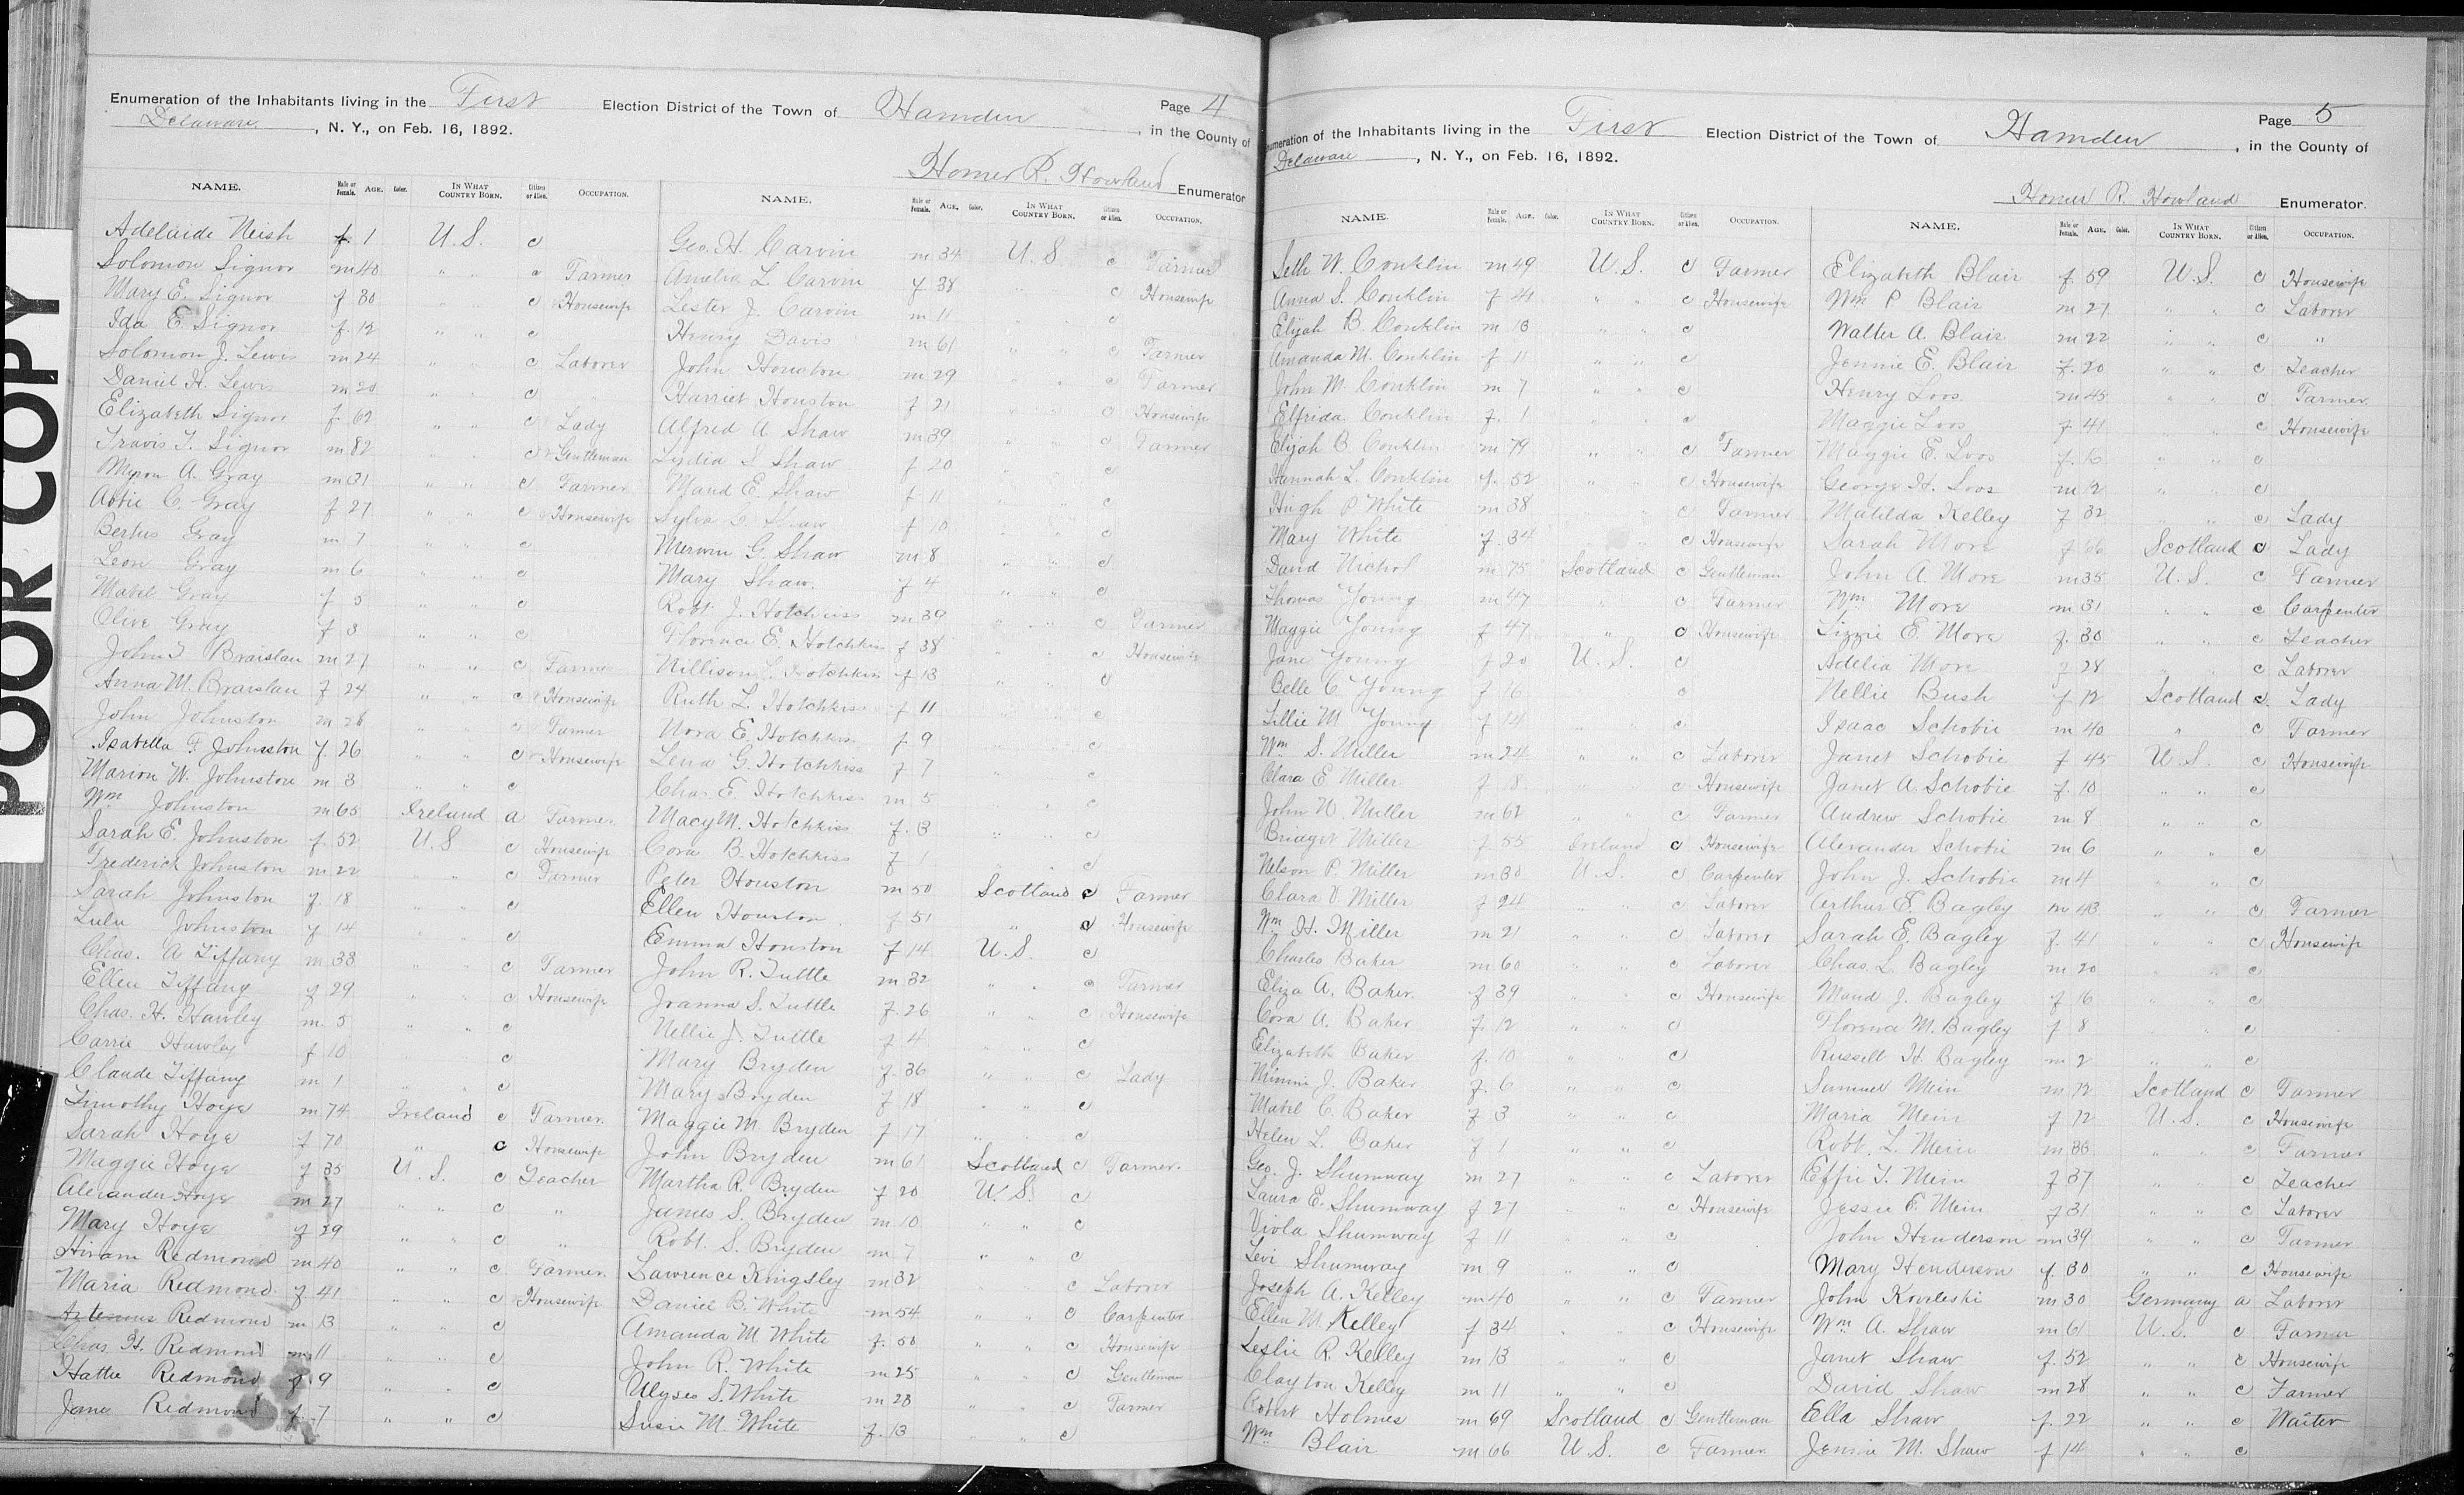 POOR COPY
Page 4
Enumeration of the Inhabitants living in the First Election District of the Town of Hamden, in the County of
Delaware, N. Y., on Feb. 16, 1892.
Homer R. Howland Enumerator
NAME. Male or Female. AGE. Color. IN WHAT COUNTRY BORN. Citizen or Alien. OCCUPATION.
Adelaide Neish f 1 U.S. c
Solomon Signor m 40 " " c Farmer
Mary E. Signor f 30 " " c Housewife
Ida E. Signor f. 12 " " c
Solomon J. Lewis m 24 " " c Laborer
Daniel H. Lewis m 20 " " c
Elizabeth Signor f. 62 " " c Lady
Travis T. Signor m 82 " " c Gentleman
Myron A. Gray m 31 " " c Farmer
Abbie C. Gray f 27 " " c Housewife
Bertus Gray m 7 " " c
Leon Gray m 6 " " c
Mabel Gray f 5 " " c
Olive Gray f 3 " " c
John Braislan m 27 " " c Farmer
Anna M. Braislan f 24 " " c Housewife
John Johnston m 26 " " c Farmer
Isabella F. Johnston f. 26 " " c Housewife
Marion W. Johnston m 3 " " c
Wm Johnston m 65 Ireland a Farmer
Sarah E. Johnston f. 52 U.S c Housewife
Frederick Johnston m 22 " " c Farmer
Sarah Johnston f. 18 " " c
Lulu Johnston f 14 " " c
Chas. A Tiffany m 33 " " c Farmer
Ellen Tiffany f 29 " " c Housewife
Chas. H. Hawley m. 5 " " c
Carrie Hawley f 10 c
Claude Tiffany m 1 " " c
Timothy Hoye m 74 Ireland c Farmer.
Sarah Hoye f 70 " c Housewife
Maggie Hoye f 35 U.S. c Teacher
Alexander Hoye m 27 " " c "
Mary Hoye f 29 " " c "
Hiram Redmond m 40 " " c Farmer.
Maria Redmond f 41 " " c Housewife
Artemus Redmond m 13 " " c
Chas H. Redmond m 11 " " c
Hattie Redmond f 9 " " c
Jane Redmond f. 7 " " c
NAME. Male or Female. AGE. Color. IN WHAT COUNTRY BORN. Citizen or Alien. OCCUPATION.
Geo. H. Carvin m 34 U.S c Farmer
Amelia L. Carvin f. 38 c Housewife
Lester J. Carvin m 11 " " c
Henry Davis m 61 " " c Farmer
John Houston m 29 " " c Farmer
Harriet Houston f 21 " " c Housewife
Alfred A. Shaw m 39 " " c Farmer
Lydia S. Shaw f 20 " " c
Maud E. Shaw f 11 " " c
Sylva C. Shaw f 10 " " c
Merwin G. Shaw m 8 " " c
Mary Shaw. f 4 " " c
Robt. J. Hotchkiss m 39 " " c Farmer
Florence E. Hotchkiss f 38 " " c Housewife
Hotchkiss f 13 " " c
Ruth L. Hotchkiss f 11 " " c
Nora E. Hotchkiss f 9 " " c
Lena G. Hotchkiss f 7 " " c
Chas E. Hotchkiss m 5 " " c
Macy M. Hotchkiss f. 3 " " c
Cora B. Hotchkiss f 1 " " c
Peter Houston m 50 Scotland c Farmer
Ellen Houston f 51 " c Housewife
Emma Houston f 14 U.S. c
John R. Tuttle m 32 " " c Farmer
Joanna S. Tuttle f. 26 " " c Housewife
Nellie J. Tuttle f 4 " " c
Mary Bryden f. 36 " " c Lady
Mary Bryden f 18 " " c
Maggie M. Bryden f 17 " " c
John Bryden m 61 Scotland c Farmer.
Martha R. Bryden f 20 U.S. c
James S. Bryden m 10 " " c
Robt. S. Bryden m 7 " " c
Lawrence Kingsley m 32 c Laborer
Daniel B. White m 54 " " c Carpenter
Amanda M. White f. 50 " " c Housewife
John R. White m 25 " " c Gentleman
Ulyses S. White m 23 " " c Farmer
Susie M. White f. 13 " " c
Page 5
Enumeration of the Inhabitants living in the First Election District of the Town of Hamden, in the County of
Delaware, N. Y., on Feb. 16, 1892.
Homer R. Howland Enumerator.
NAME. Male or Female. AGE. Color. IN WHAT COUNTRY BORN. Citizen or Alien. OCCUPATION.
Seth W. Conklin m 49 U.S. c Farmer
Anna S. Conklin f 41 " " c Housewife
Elijah B. Conklin m 13 " " c
Amanda M. Conklin f 11 " " c
John M. Conklin m 7 " " c
Elfrida Conklin f. 1 " " c
Elijah B Conklin m 79 " " c Farmer
Hannah L. Conklin f. 52 " " c Housewife
Hugh P White m 38 " " c Farmer
Mary White f. 34 " c Housewife
David Nichol m 75 Scotland c Gentleman
Thomas Young m 47 " c Farmer
Maggie Young f 47 " c Housewife
Jane Young f 20 U.S. c
Belle C. Young f 16 c
Lillie M Young f 14 " " c
Wm S. Miller m 24 " " c Laborer
Clara E Miller f 18 " " c Housewife
John W. Miller m 62 " " c Farmer
Bridget Miller f 55 Ireland c Housewife
Nelson P. Miller m 30 U.S. c Carpenter
Clara V. Miller f 24 " " c Laborer
Wm H. Miller m 21 " " c Laborer
Charles Baker m 60 " " c Laborer
Eliza A. Baker. f 39 " " c Housewife
Cora A. Baker f. 12 " " c
Elizabeth Baker f. 10 " " c
Minnie J. Baker f. 6 " " c
Mabel C. Baker f 3 " " c
Helen L. Baker f 1 " " c
Geo. J. Shumway m 27 " " c Laborer
Laura E. Shumway f 27 " " c Housewife
Viola Shumway f 11 " " c
Levi Shumway m 9 " " c
Joseph A. Kelley m 40 " " c Farmer
Ellen M. Kelley f 34 " " c Housewife
Leslie R. Kelley m 13 " " c
Clayton Kelley m 11 " " c
Robert Holmes m 69 Scotland c Gentleman
Wm Blair m 66 U.S. c Farmer
NAME. Male or Female. AGE. Color. IN WHAT COUNTRY BORN. Citizen or Alien. OCCUPATION.
Elizabeth Blair f. 59 U.S. c Housewife
Wm P Blair m 27 " " c Laborer
Walter A. Blair m 22 " " c "
Jennie E. Blair f. 20 " " c Teacher
Henry Loos m 45 " " c Farmer
Maggie Loos f 41 " c Housewife
Maggie E. Loos f. 16 " " c
George H. Loos m 2 " c
Matilda Kelley f 32 " " c Lady
Sarah More f 66 Scotland c Lady
John A. More m 35 U.S. c Farmer
Wm More m. 31 " " c Carpenter
Lizzie E. More f. 30 " " c Teacher
Adelia More f 28 " c Laborer
Nellie Bush f 12 Scotland c. Lady
Isaac Schobie m 40 " c Farmer
Janet Schobie f 45 U.S. c Housewife
Janet A. Schobie f. 10 " " c
Andrew Schobie m 8 " " c
Alexander Schobie m 6 " " c
John J. Schobie m 4 " " c
Arthur E. Bagley m 43 " " c Farmer
Sarah E. Bagley f. 41 " " c Housewife
Chas. L. Bagley m 20 " " c
Maud J. Bagley f 16 " " c
Florence M. Bagley f 8 " " c
Russell H. Bagley m 2 " c
Samuel Mein m 72 Scotland c Farmer
Maria Mein f 72 U.S. c Housewife
Robt. L. Mein m 33 " " c Farmer
Effie T. Mein f 37 " " c Teacher
Jessie E. Mein f 31 " " c Laborer
John Henderson m 39 " " c Farmer
Mary Henderson f. 30 " " c Housewife
John Kovileski m 30 Germany a Laborer
Wm A. Shaw m 61 U.S. c Farmer
Janet Shaw f. 52 " " c Housewife
David Shaw m 28 " " c Farmer
Ella Shaw f. 22 " " c Waiter
Jennie M. Shaw f 14 " " c